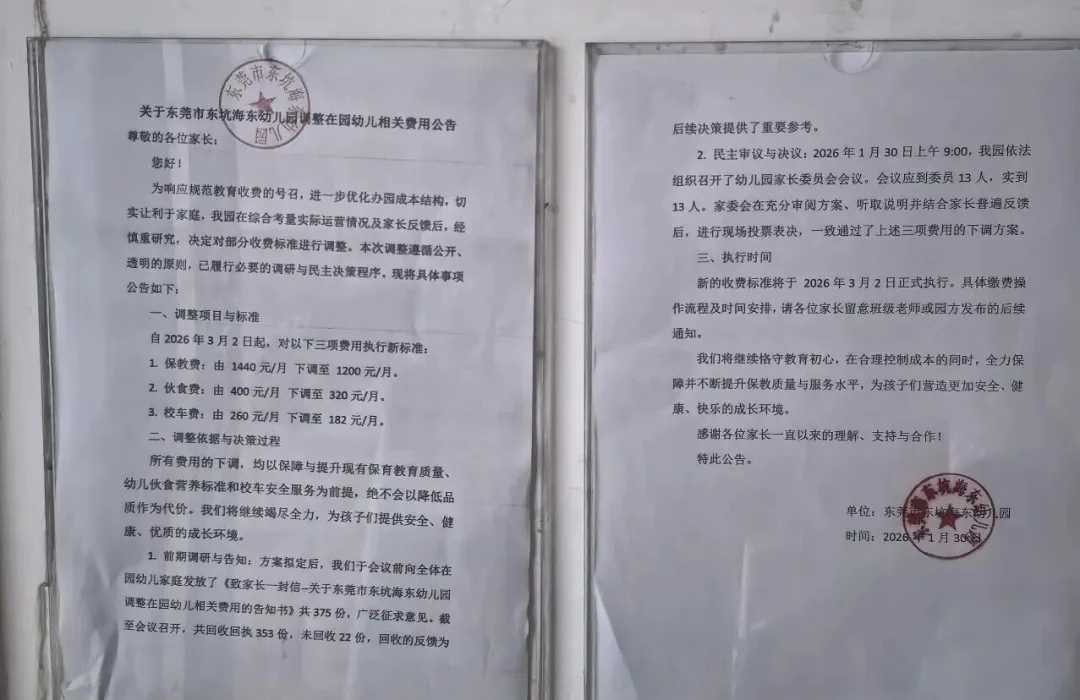 关于东莞市东坑海东幼儿园调整在园幼儿相关费用公告
尊敬的各位家长：
您好！
为响应规范教育收费的号召，进一步优化办园成本结构，切
实让利于家庭，我园在综合考量实际运营情况及家长反馈后，经
慎重研究，决定对部分收费标准进行调整。本次调整遵循公开、
透明的原则，已履行必要的调研与民主决策程序。现将具体事项
公告如下：
一、调整项目与标准
自 2026 年 3 月 2 日起，对以下三项费用执行新标准：
1. 保教费：由 1440 元/月 下调至 1200 元/月。
2. 伙食费：由 400 元/月 下调至 320 元/月。
3. 校车费：由 260 元/月 下调至 182 元/月。
二、调整依据与决策过程
所有费用的下调，均以保障与提升现有保育教育质量、
幼儿伙食营养标准和校车安全服务为前提，绝不会以降低品
质作为代价。我们将继续竭尽全力，为孩子们提供安全、健
康、优质的成长环境。
1. 前期调研与告知：方案拟定后，我们于会议前向全体在
园幼儿家庭发放了《致家长一封信--关于东莞市东坑海东幼儿园
调整在园幼儿相关费用的告知书》共 375 份，广泛征求意见。截
至会议召开，共回收回执 353 份，未回收 22 份，回收的反馈为
东莞市东坑海东幼儿园
后续决策提供了重要参考。
2. 民主审议与决议：2026 年 1 月 30 日上午 9:00，我园依法
组织召开了幼儿园家长委员会会议。会议应到委员 13 人，实到
13 人。家委会在充分审阅方案、听取说明并结合家长普遍反馈
后，进行现场投票表决，一致通过了上述三项费用的下调方案。
三、执行时间
新的收费标准将于 2026 年 3 月 2 日正式执行。具体缴费操
作流程及时间安排，请各位家长留意班级老师或园方发布的后续
通知。
我们将继续恪守教育初心，在合理控制成本的同时，全力保
障并不断提升保教质量与服务水平，为孩子们营造更加安全、健
康、快乐的成长环境。
感谢各位家长一直以来的理解、支持与合作！
特此公告。
单位：东莞市东坑海东幼儿园
时间：2026 年 1 月 30 日
东莞市东坑海东幼儿园